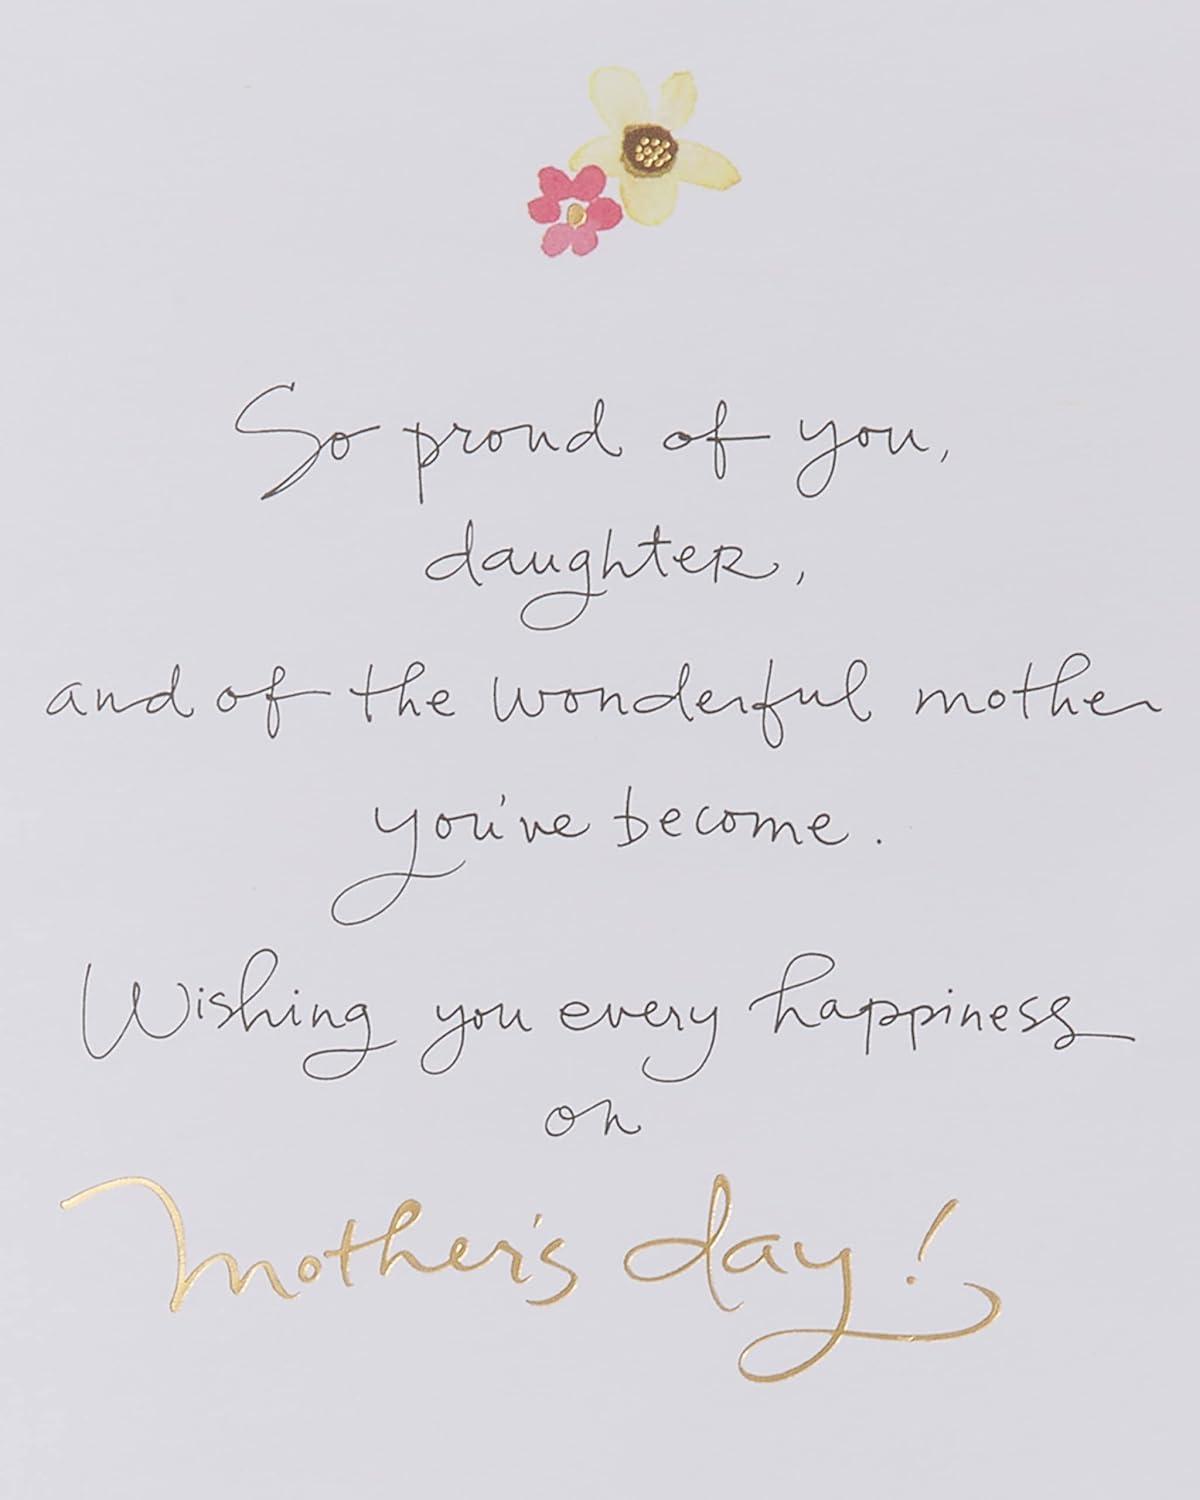 So proud of you,
daughter,
and of the wonderful mother
you've become.
Wishing you every happiness
on
Mother's day!